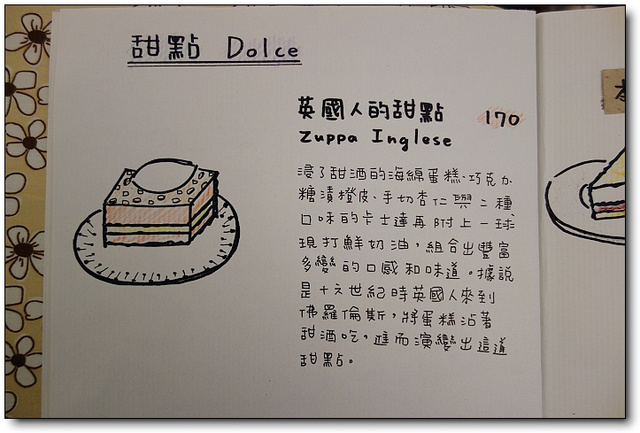 甜點 Dolce
英國人的甜點 170
Zuppa Inglese
浸了甜酒的海綿蛋糕、巧克力、
糖漬橙皮、手切杏仁與二種
口味的卡士達再附上一球
現打鮮奶油，組合出豐富
多變的口感和味道。據說
是十六世紀時英國人來到
佛羅倫斯，將蛋糕沾著
甜酒吃，進而演變出這道
甜點。